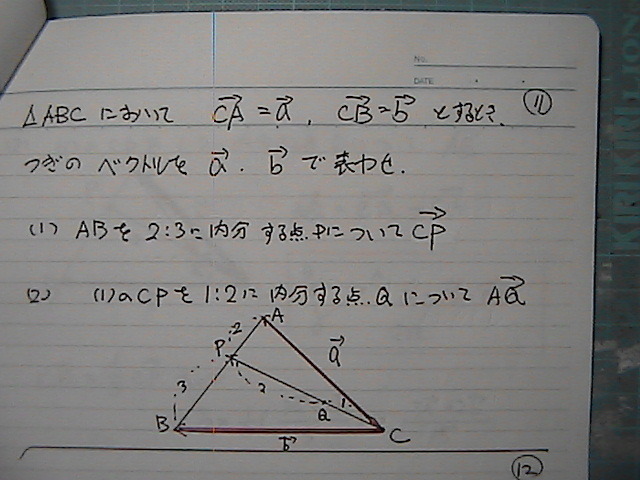 No.
DATE
△ABC において CA→ = a→, CB→ = b→ とするとき、 ⑪
つぎの ベクトルを a→. b→ で 表わせ.
(1) ABを 2:3に 内分 する点 Pについて CP→
(2) (1)のCPを 1:2に 内分する点 Q について AQ→
A
2
P
a→
3
2
1
Q
B
C
b→
⑫